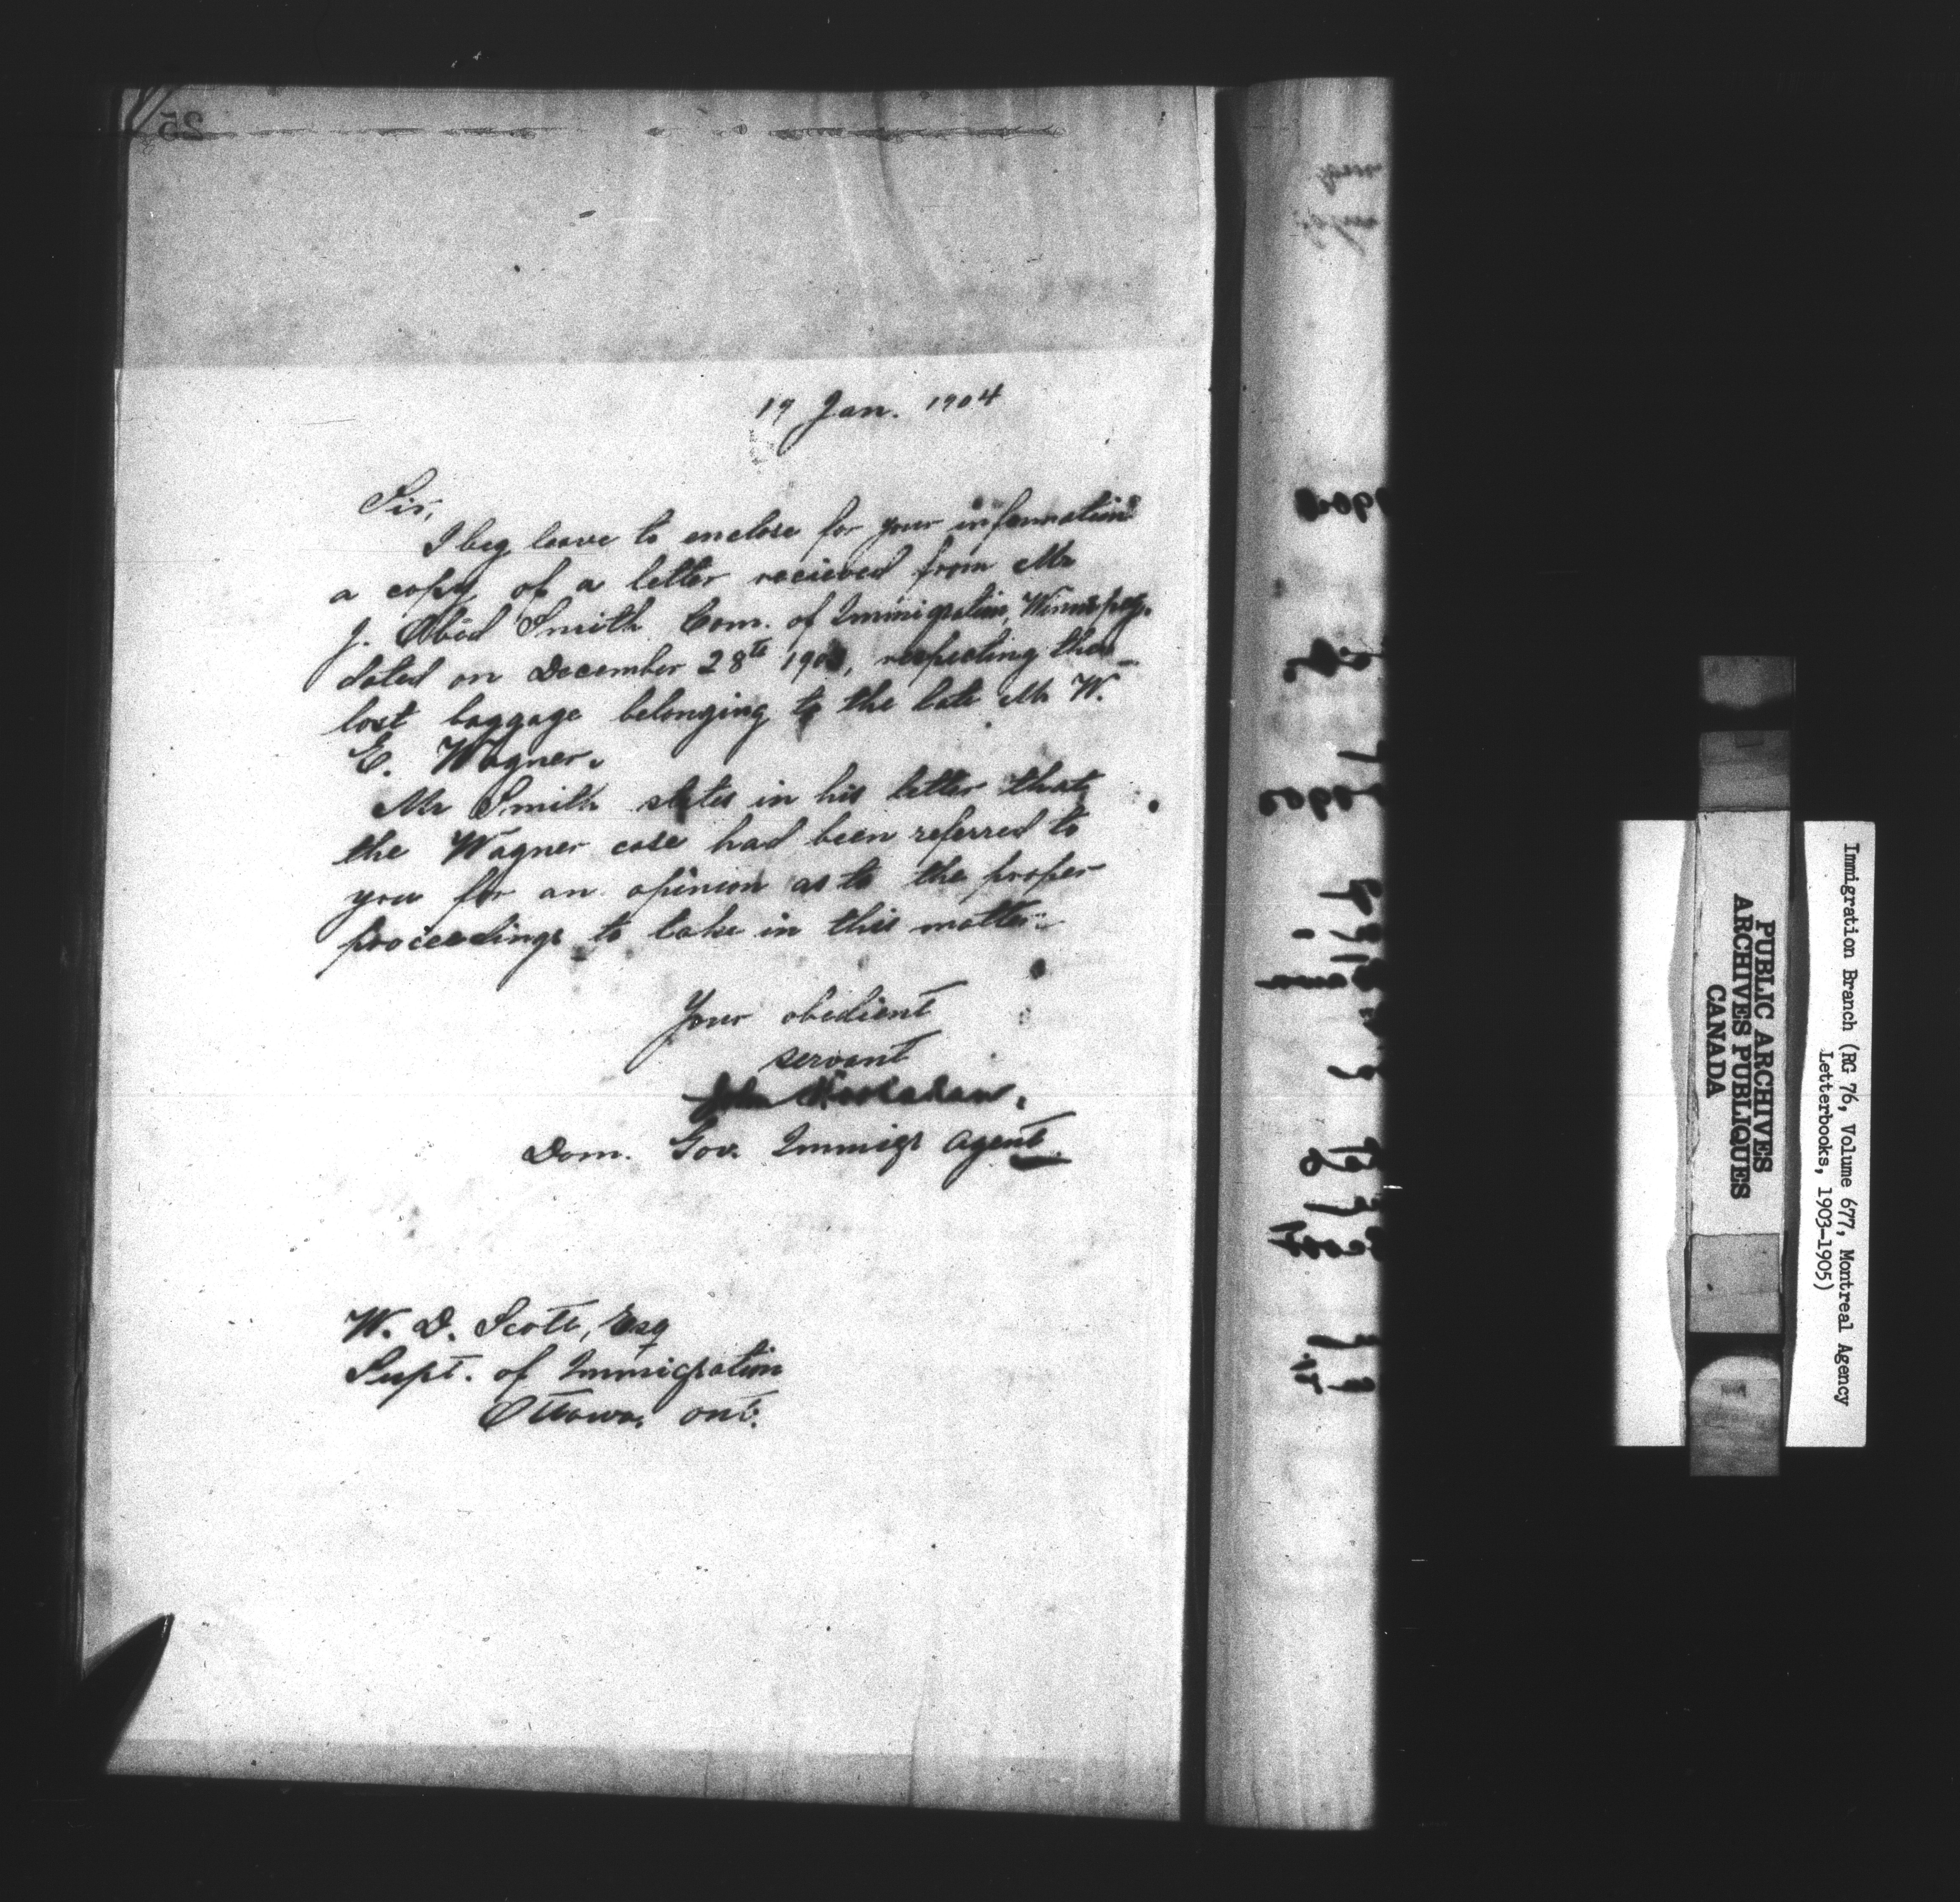 19 Jan. 1904
Sir,
I beg leave to enclose for your information
a copy of a letter recieved from Mr
J. Obed Smith Com. of Immigration, Winnipeg.
dated on December 28th 1903, respecting the
lost baggage belonging to the late Mr W.
E. Wagner.
Mr Smith states in his letter that
the Wagner case had been referred to
you for an opinion as to the proper
proceedings to take in this matter.
Your obedient
servant
John
Dom. Gov. Immigr Agent
W. D. Scott, Esq
Supt. of Immigration
Ottawa, Ont.
Immigration Branch (RG 76, Volume 677, Montreal Agency
Letterbooks, 1903-1905)
PUBLIC ARCHIVES
ARCHIVES PUBLIQUES
CANADA
25